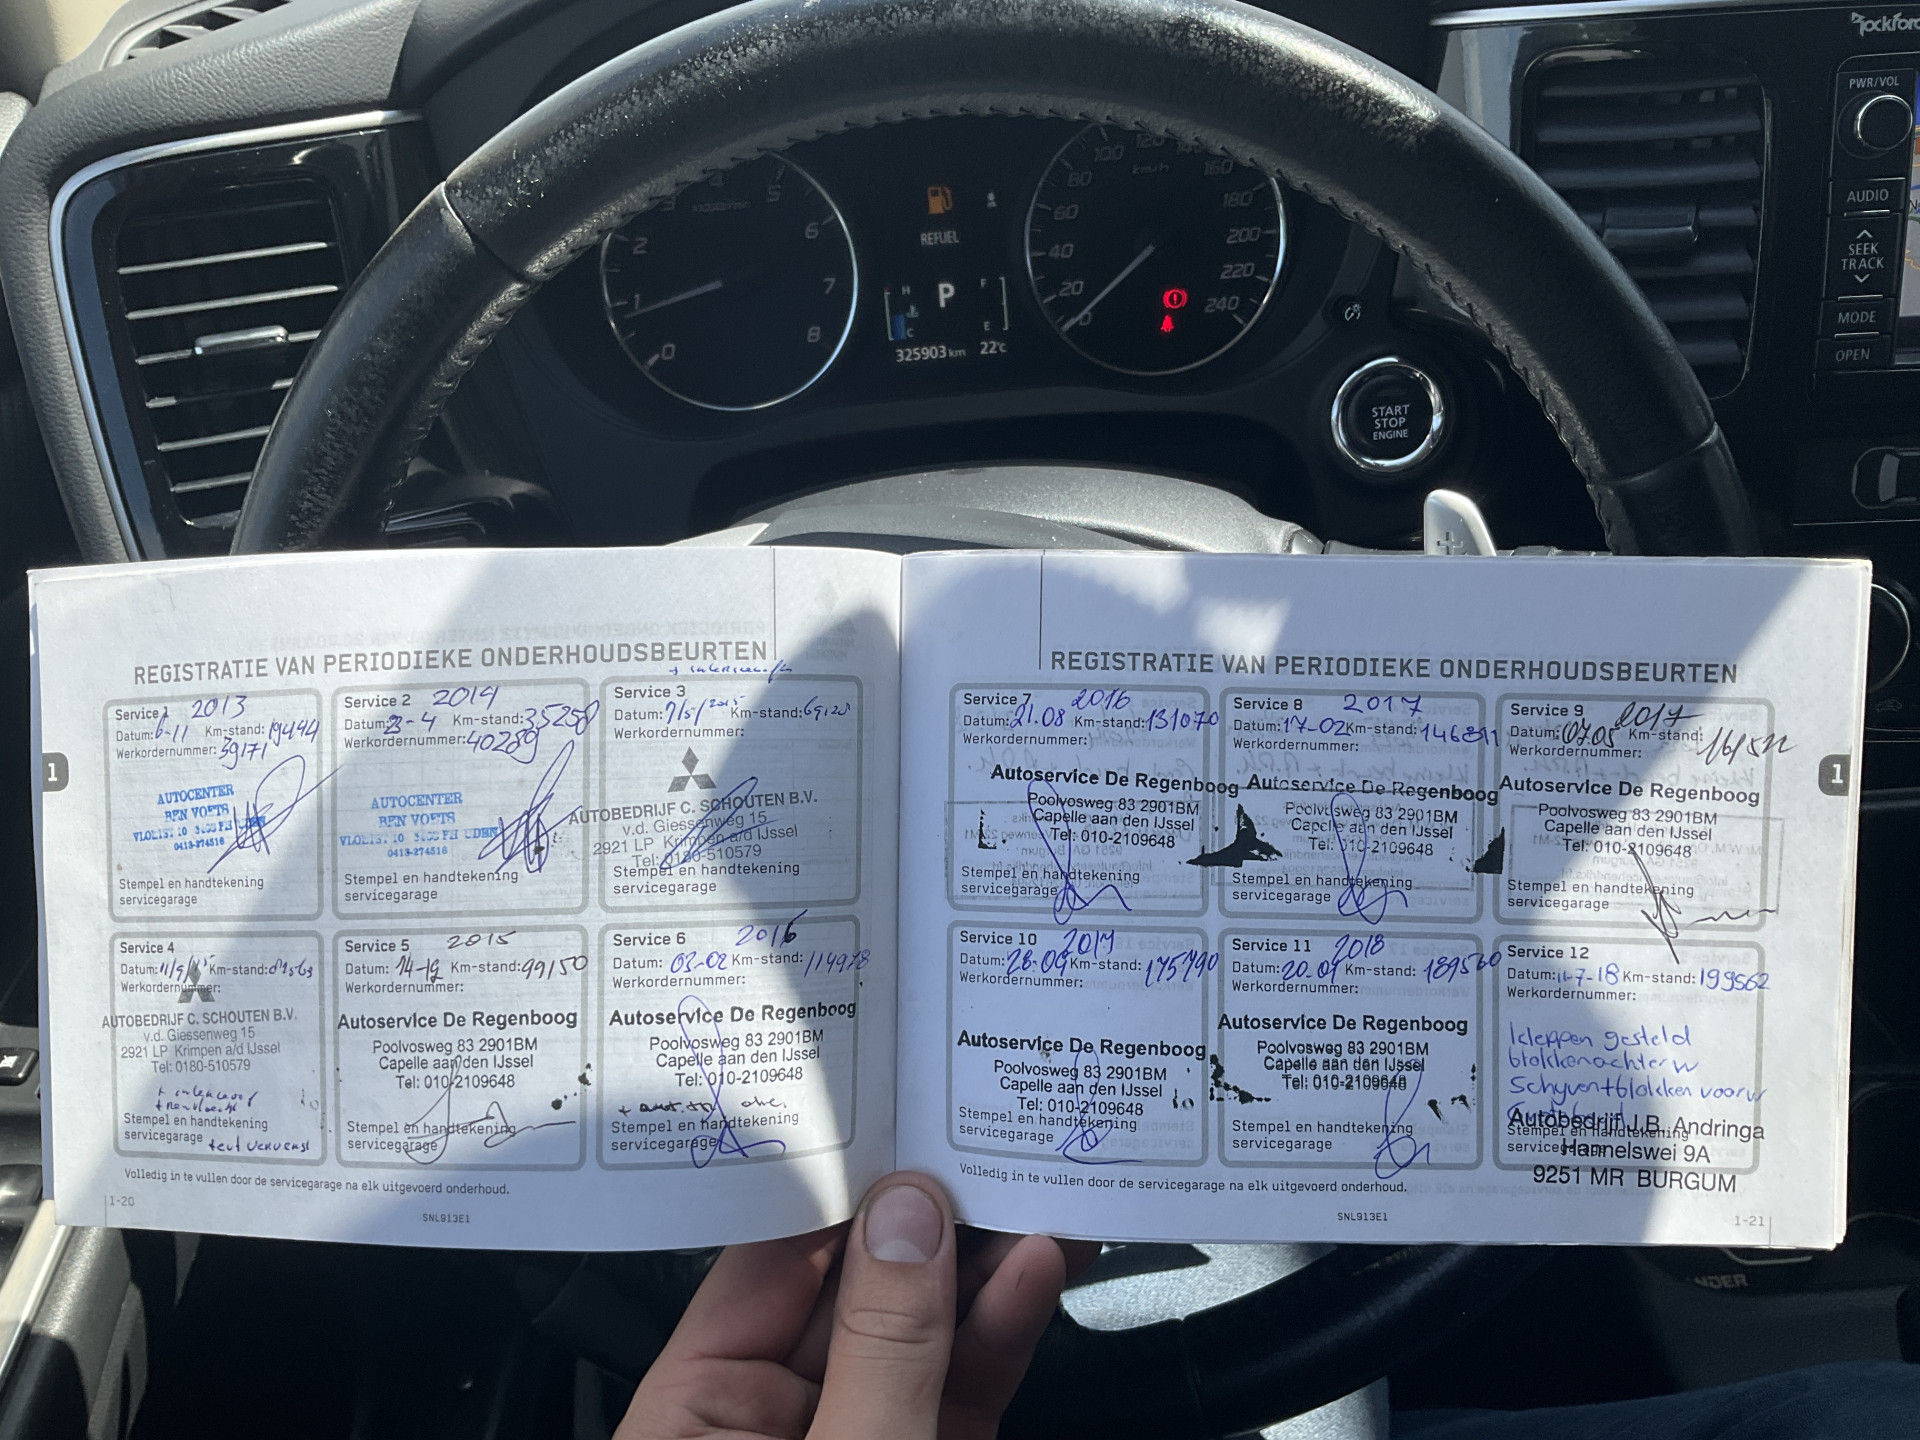 Rockford
PWR/VOL
AUDIO
SEEK
TRACK
MODE
OPEN
REFUEL
H P F
C E
325903 km 22°c
0 1 2 3 4 5 6 7 8
km/h
0 20 40 60 80 100 120 140 160 180 200 220 240
START
STOP
ENGINE
+
REGISTRATIE VAN PERIODIEKE ONDERHOUDSBEURTEN
Service 1 2013
Datum: 6-11 Km-stand: 19444
Werkordernummer: 39171
AUTOCENTER
BEN VOETS
0413-274516
Stempel en handtekening
servicegarage
Service 2 2014
Datum: 3-4 Km-stand: 35258
Werkordernummer: 40289
AUTOCENTER
BEN VOETS
0413-274516
Stempel en handtekening
servicegarage
Service 3
Datum: 7/5/2015 Km-stand:
Werkordernummer:
AUTOBEDRIJF C. SCHOUTEN B.V.
v.d. Giessenweg 15
2921 LP Krimpen a/d IJssel
Tel: 0180-510579
Stempel en handtekening
servicegarage
Service 4
Datum: 11/9/15 Km-stand:
Werkordernummer:
AUTOBEDRIJF C. SCHOUTEN B.V.
v.d. Giessenweg 15
2921 LP Krimpen a/d IJssel
Tel: 0180-510579
Stempel en handtekening
servicegarage
Service 5 2015
Datum: 14-12 Km-stand: 99150
Werkordernummer:
Autoservice De Regenboog
Poolvosweg 83 2901BM
Capelle aan den IJssel
Tel: 010-2109648
Stempel en handtekening
servicegarage
Service 6 2016
Datum: 03-02 Km-stand: 114978
Werkordernummer:
Autoservice De Regenboog
Poolvosweg 83 2901BM
Capelle aan den IJssel
Tel: 010-2109648
Stempel en handtekening
servicegarage
Volledig in te vullen door de servicegarage na elk uitgevoerd onderhoud.
1-20
SNL913E1
1
REGISTRATIE VAN PERIODIEKE ONDERHOUDSBEURTEN
Service 7 2016
Datum: 21.08 Km-stand: 131070
Werkordernummer:
Autoservice De Regenboog
Poolvosweg 83 2901BM
Capelle aan den IJssel
Tel: 010-2109648
Stempel en handtekening
servicegarage
Service 8 2017
Datum: 17-02 Km-stand: 146811
Werkordernummer:
Autoservice De Regenboog
Poolvosweg 83 2901BM
Capelle aan den IJssel
Tel: 010-2109648
Stempel en handtekening
servicegarage
Service 9 2017
Datum: 07.05 Km-stand:
Werkordernummer:
Autoservice De Regenboog
Poolvosweg 83 2901BM
Capelle aan den IJssel
Tel: 010-2109648
Stempel en handtekening
servicegarage
Service 10 2017
Datum: 28.09 Km-stand: 175790
Werkordernummer:
Autoservice De Regenboog
Poolvosweg 83 2901BM
Capelle aan den IJssel
Tel: 010-2109648
Stempel en handtekening
servicegarage
Service 11 2018
Datum: 20.01 Km-stand: 189560
Werkordernummer:
Autoservice De Regenboog
Poolvosweg 83 2901BM
Capelle aan den IJssel
Tel: 010-2109648
Stempel en handtekening
servicegarage
Service 12
Datum: 11-7-18 Km-stand: 199562
Werkordernummer:
kleppen gesteld
blokken achter w
Schyven+blokken voorw
Autobedrijf J.B. Andringa
Stempel en handtekening
servicegarage
Hamelswei 9A
9251 MR BURGUM
Volledig in te vullen door de servicegarage na elk uitgevoerd onderhoud.
SNL913E1
1-21
1